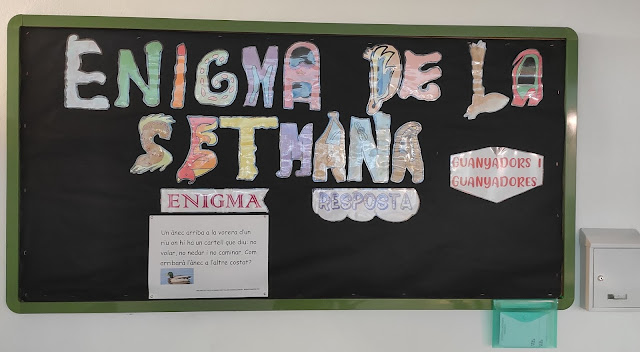 ENIGMA DE LA
SETMANA
GUANYADORS I
GUANYADORES
ENIGMA
RESPOSTA
Un ànec arriba a la vorera d'un
riu on hi ha un cartell que diu: no
volar, no nedar i no caminar. Com
arribarà l'ànec a l'altre costat?